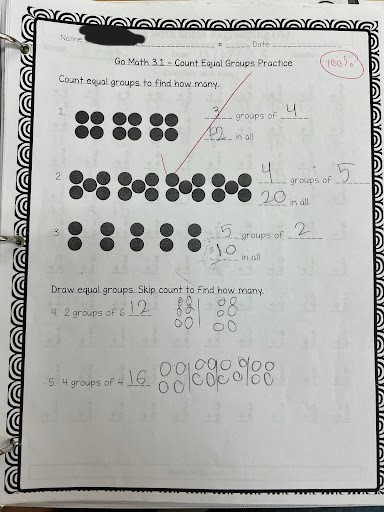 Name # Date
Go Math 3.1 - Count Equal Groups Practice
100%
Count equal groups to find how many.
1. 3 groups of 4
12 in all
2. 4 groups of 5
20 in all
3. 5 groups of 2
10 in all
Draw equal groups. Skip count to find how many.
4. 2 groups of 6 12
5. 4 groups of 4 16